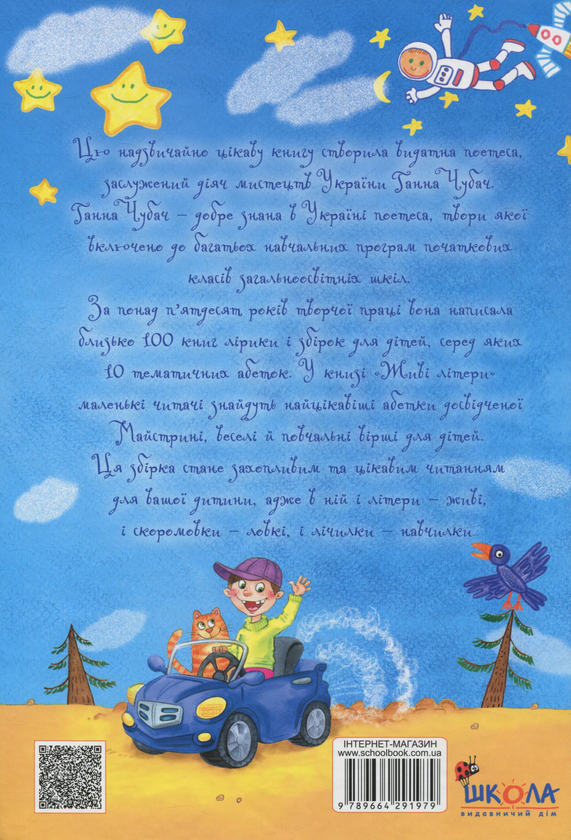 Цю надзвичайно цікаву книгу створила видатна поетеса,
заслужений діяч мистецтв України Ганна Чубач.
Ганна Чубач – добре знана в Україні поетеса, твори якої
включено до багатьох навчальних програм початкових
класів загальноосвітніх шкіл.
За понад п'ятдесят років творчої праці вона написала
близько 100 книг лірики і збірок для дітей, серед яких
10 тематичних абеток. У книзі «Живі літери»
маленькі читачі знайдуть найцікавіші абетки досвідченої
Майстрині, веселі й повчальні вірші для дітей.
Ця збірка стане захопливим та цікавим читанням
для вашої дитини, адже в ній і літери – живі,
і скоромовки – ловкі, і лічилки – навчилки...
ІНТЕРНЕТ-МАГАЗИН
www.schoolbook.com.ua
9 789664 291979
ШКОЛА
видавничий дім